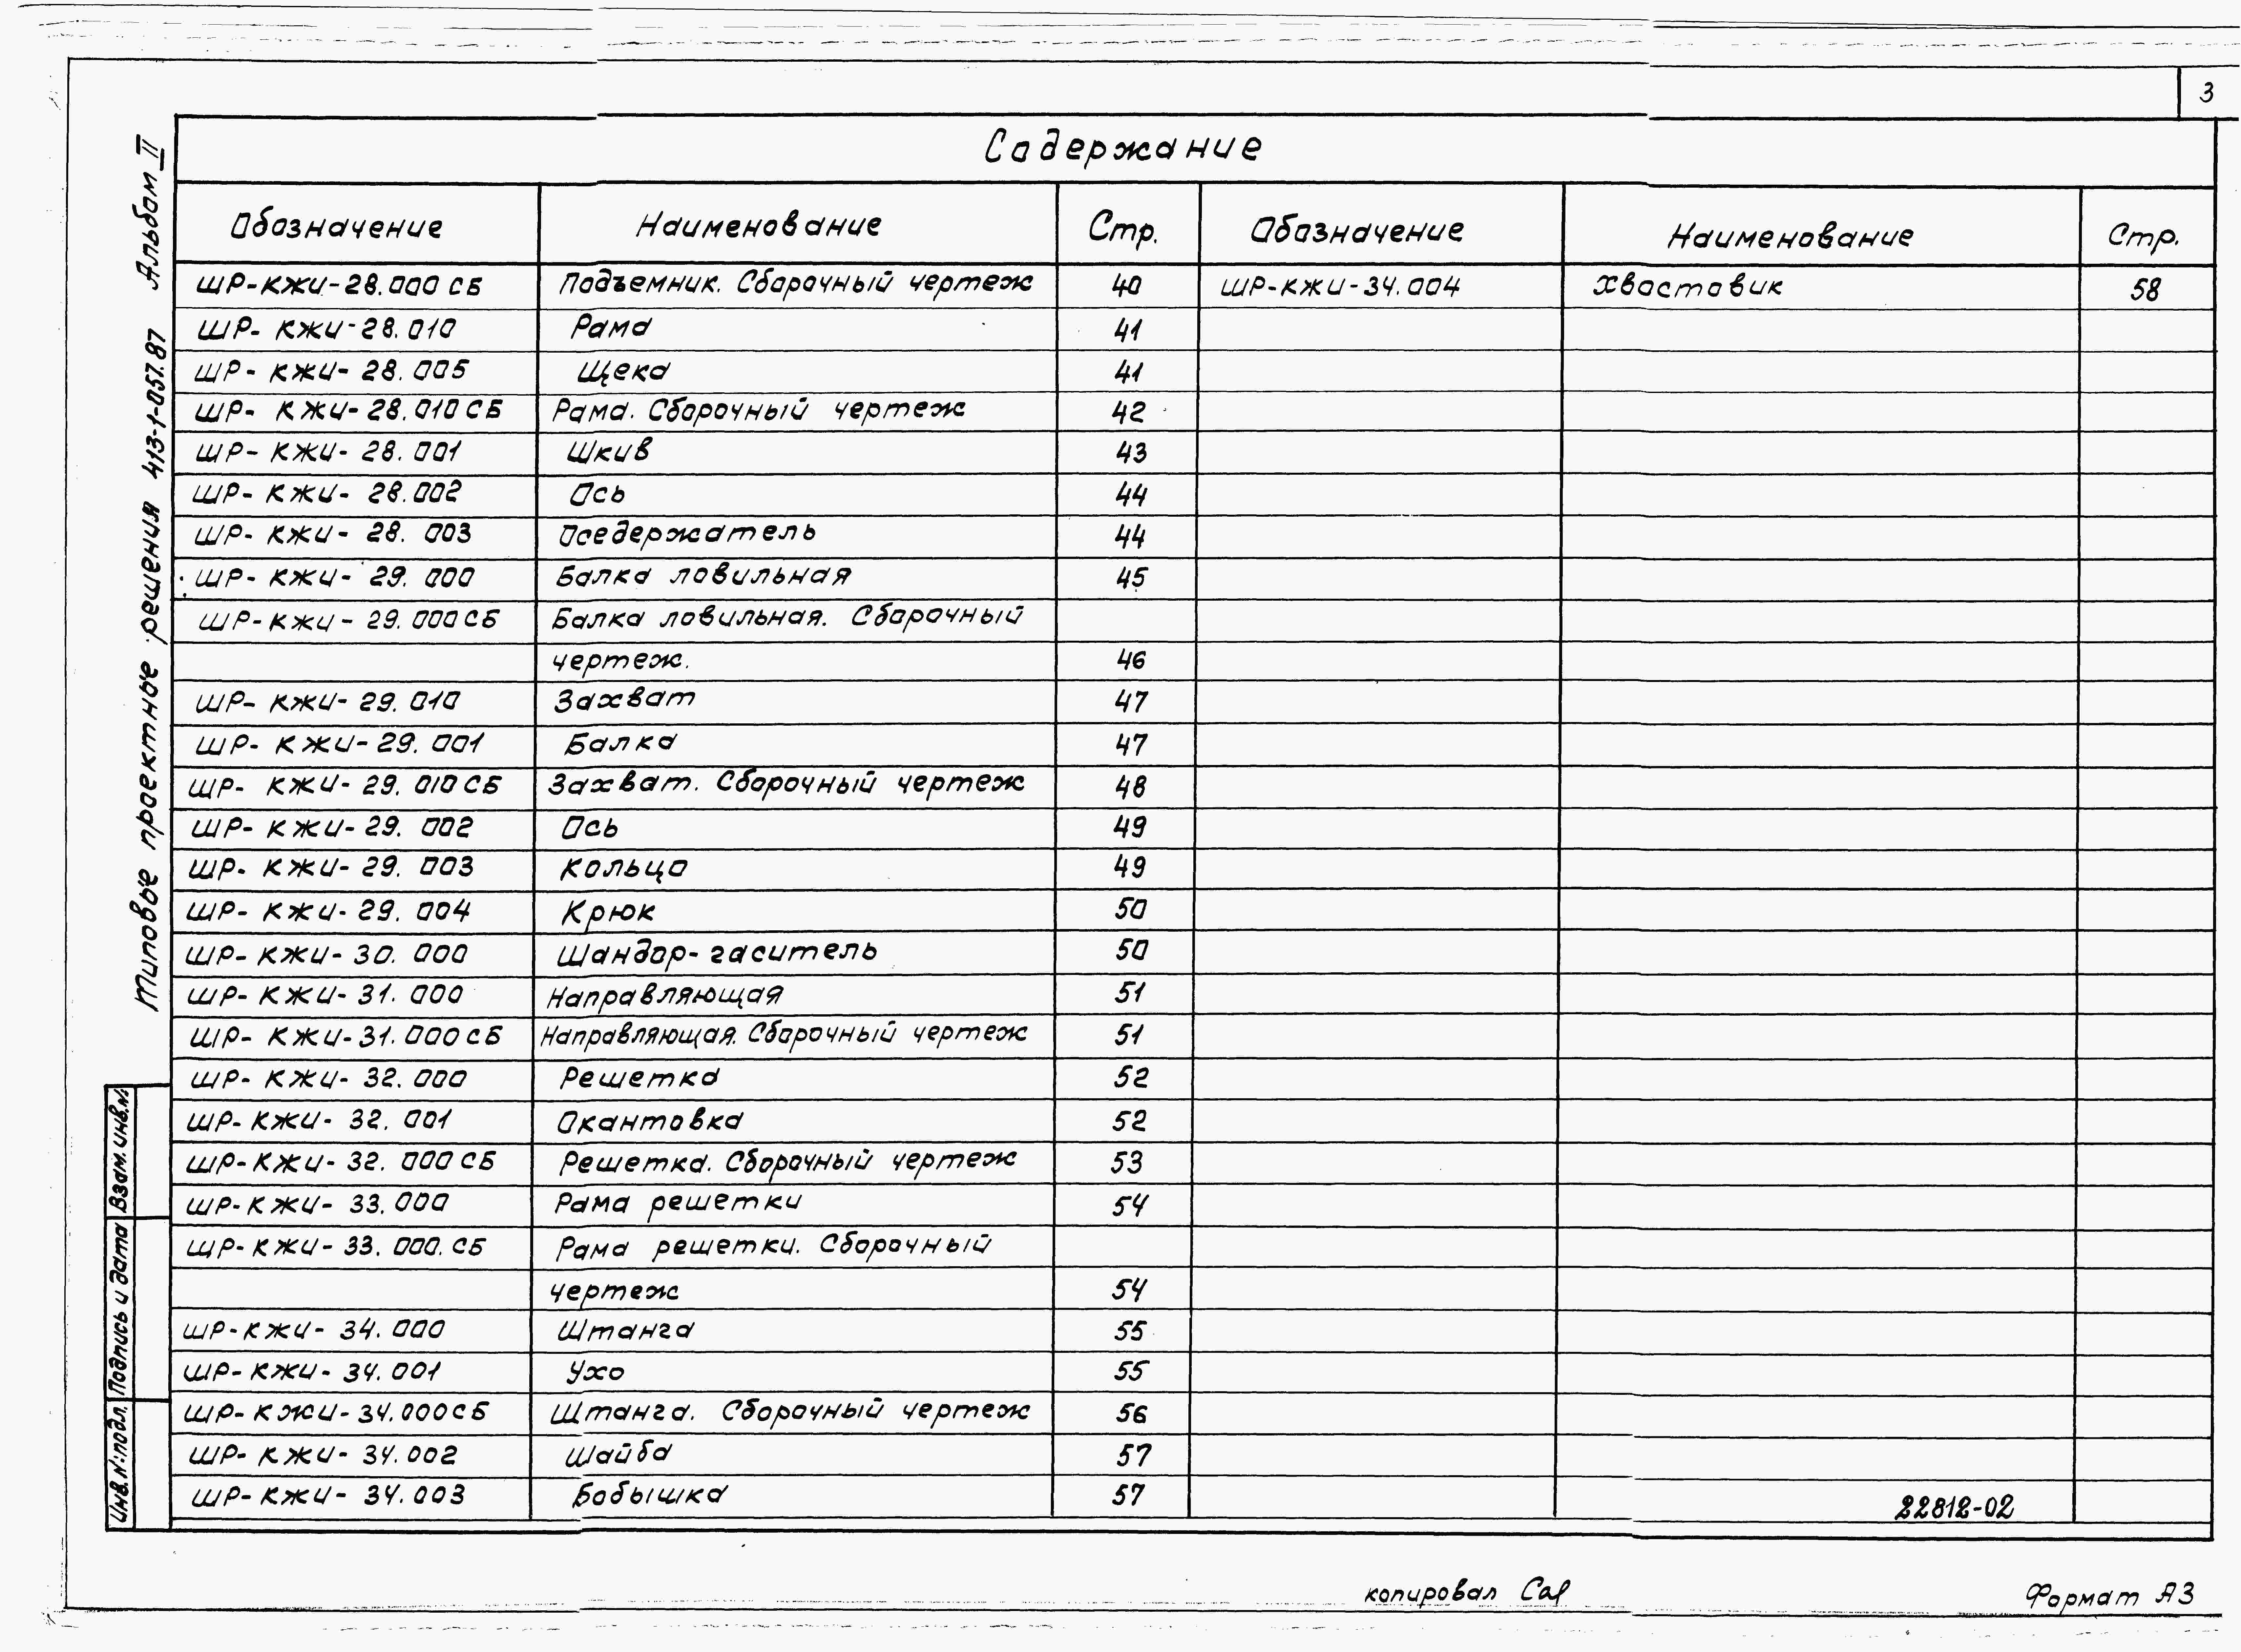 3
Содержание
Обозначение Наименование Стр. Обозначение Наименование Стр.
ШР-КЖИ-28.000 СБ Подъемник. Сборочный чертеж 40 ШР-КЖИ-34.004 Хвостовик 58
ШР-КЖИ-28.010 Рама 41
ШР-КЖИ-28.005 Щека 41
ШР-КЖИ-28.010 СБ Рама. Сборочный чертеж 42
ШР-КЖИ-28.001 Шкив 43
ШР-КЖИ-28.002 Ось 44
ШР-КЖИ-28.003 Оседержатель 44
ШР-КЖИ-29.000 Балка ловильная 45
ШР-КЖИ-29.000 СБ Балка ловильная. Сборочный
чертеж. 46
ШР-КЖИ-29.010 Захват 47
ШР-КЖИ-29.001 Балка 47
ШР-КЖИ-29.010 СБ Захват. Сборочный чертеж 48
ШР-КЖИ-29.002 Ось 49
ШР-КЖИ-29.003 Кольцо 49
ШР-КЖИ-29.004 Крюк 50
ШР-КЖИ-30.000 Шандор-гаситель 50
ШР-КЖИ-31.000 Направляющая 51
ШР-КЖИ-31.000 СБ Направляющая. Сборочный чертеж 51
ШР-КЖИ-32.000 Решетка 52
ШР-КЖИ-32.001 Окантовка 52
ШР-КЖИ-32.000 СБ Решетка. Сборочный чертеж 53
ШР-КЖИ-33.000 Рама решетки 54
ШР-КЖИ-33.000.СБ Рама решетки. Сборочный
чертеж 54
ШР-КЖИ-34.000 Штанга 55
ШР-КЖИ-34.001 Ухо 55
ШР-КЖИ-34.000 СБ Штанга. Сборочный чертеж 56
ШР-КЖИ-34.002 Шайба 57
ШР-КЖИ-34.003 Бобышка 57
22812-02
Типовые проектные решения 413-1-057.87 Альбом II
Взам. инв.№
Подпись и дата
Инв.№ подл.
копировал
Формат А3